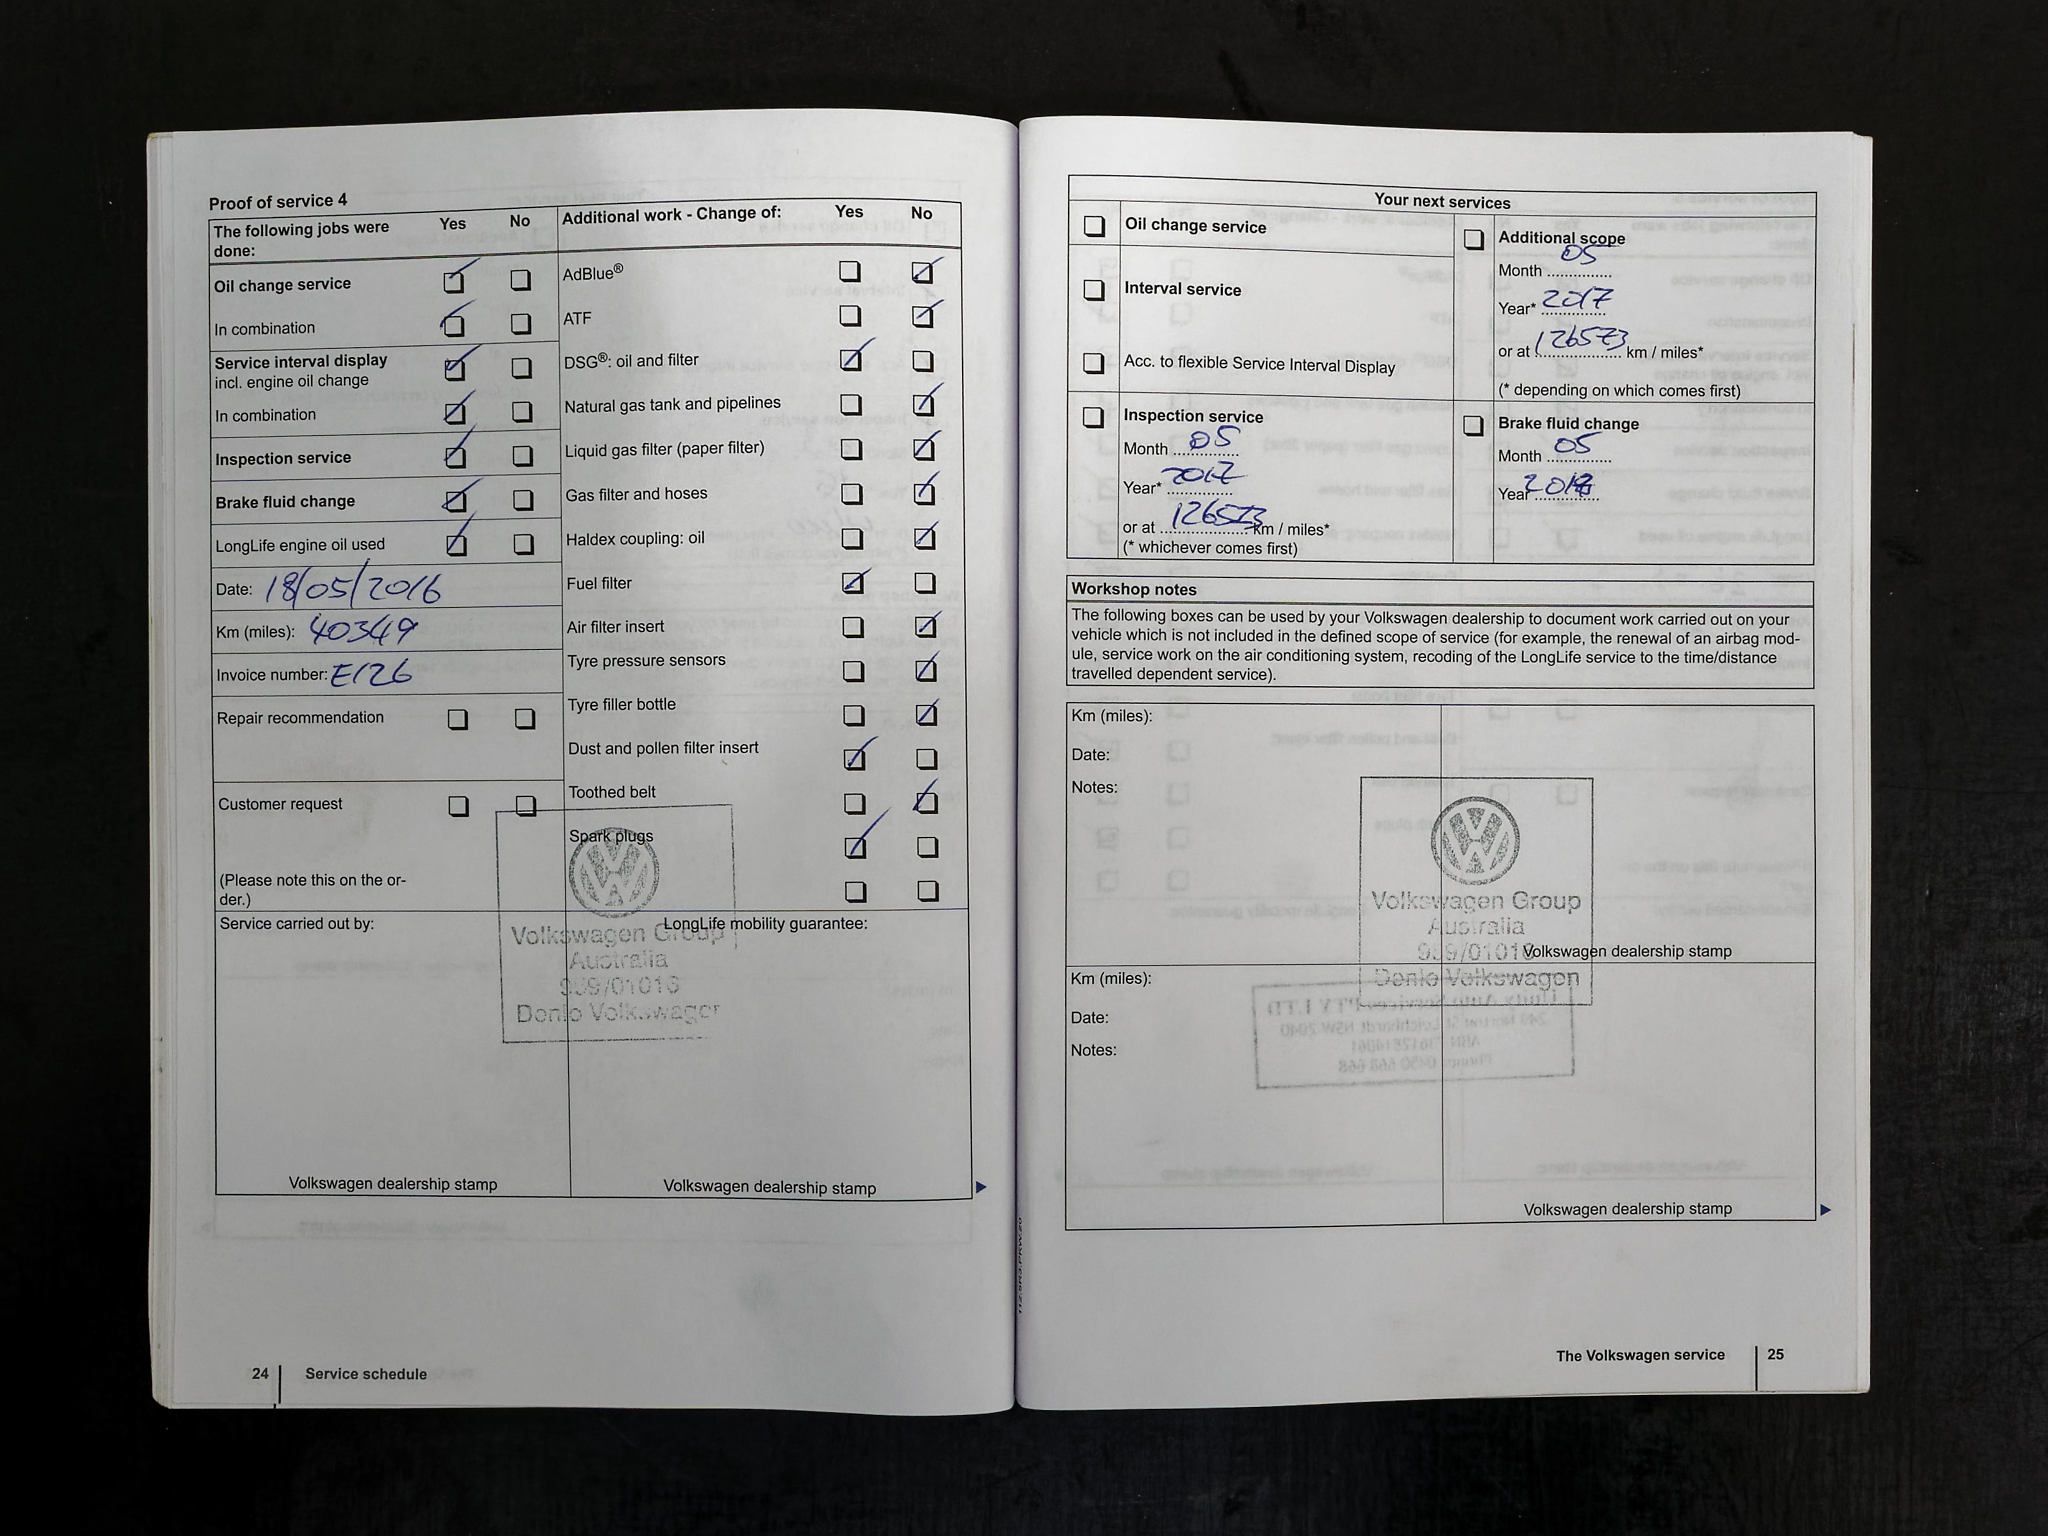 Proof of service 4
The following jobs were done: Yes No
Oil change service
In combination
Service interval display
incl. engine oil change
In combination
Inspection service
Brake fluid change
LongLife engine oil used
Date: 18/05/2016
Km (miles): 40349
Invoice number: E126
Repair recommendation
Customer request
(Please note this on the or-
der.)
Additional work - Change of: Yes No
AdBlue®
ATF
DSG®: oil and filter
Natural gas tank and pipelines
Liquid gas filter (paper filter)
Gas filter and hoses
Haldex coupling: oil
Fuel filter
Air filter insert
Tyre pressure sensors
Tyre filler bottle
Dust and pollen filter insert
Toothed belt
Spark plugs
Service carried out by:
LongLife mobility guarantee:
Volkswagen Group
Australia
989/01016
Denlo Volkswagen
Volkswagen dealership stamp
Volkswagen dealership stamp
24 Service schedule
Your next services
Oil change service
Interval service
Acc. to flexible Service Interval Display
Additional scope
Month 05
Year* 2017
or at 126573 km / miles*
(* depending on which comes first)
Inspection service
Month 05
Year* 2017
or at 126573 km / miles*
(* whichever comes first)
Brake fluid change
Month 05
Year 2018
Workshop notes
The following boxes can be used by your Volkswagen dealership to document work carried out on your
vehicle which is not included in the defined scope of service (for example, the renewal of an airbag mod-
ule, service work on the air conditioning system, recoding of the LongLife service to the time/distance
travelled dependent service).
Km (miles):
Date:
Notes:
Volkswagen Group
Australia
989/01016
Denlo Volkswagen
Volkswagen dealership stamp
Km (miles):
Date:
Notes:
Volkswagen dealership stamp
The Volkswagen service 25